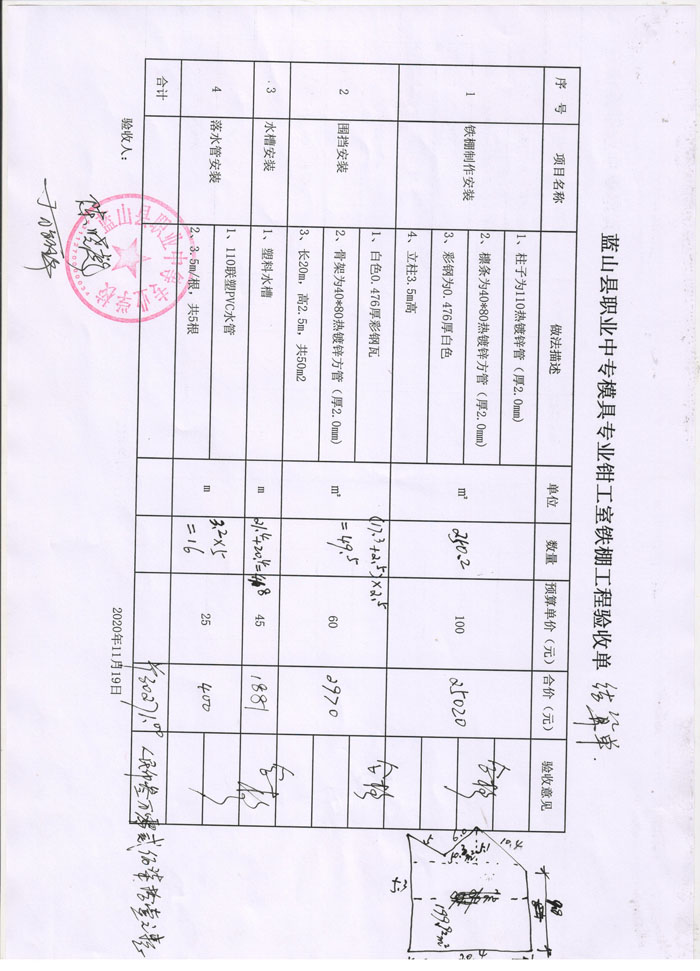 蓝山县职业中专模具专业钳工室铁棚工程验收单 结算单
序 号 项目名称 做法描述 单位 数量 预算单价（元） 合价（元） 验收意见
1 铁棚制作安装 1、柱子为110热镀锌管（厚2.0mm） m² 250.2 100 25020 合格
2、檩条为40*80热镀锌方管（厚2.0mm）
3、彩钢为0.476厚白色
4、立柱3.5m高
2 围挡安装 1、白色0.476厚彩钢瓦 m² (17.3+2.5)×2.5 60 2970 合格
=49.5
2、骨架为40*80热镀锌方管（厚2.0mm）
3、长20m，高2.5m，共50m2
3 水槽安装 1、塑料水槽 m 21.4+20.4=41.8 45 1881 合格
4 落水管安装 1、110联塑PVC水管 m 3.2×5 25 400
=16
2、3.5m/根，共5根
合计 ¥30271.00 人民币叁万零贰佰柒拾壹元整
验收人：
2020年11月19日
蓝山县职业中等专业学校
10.4
199.92m²